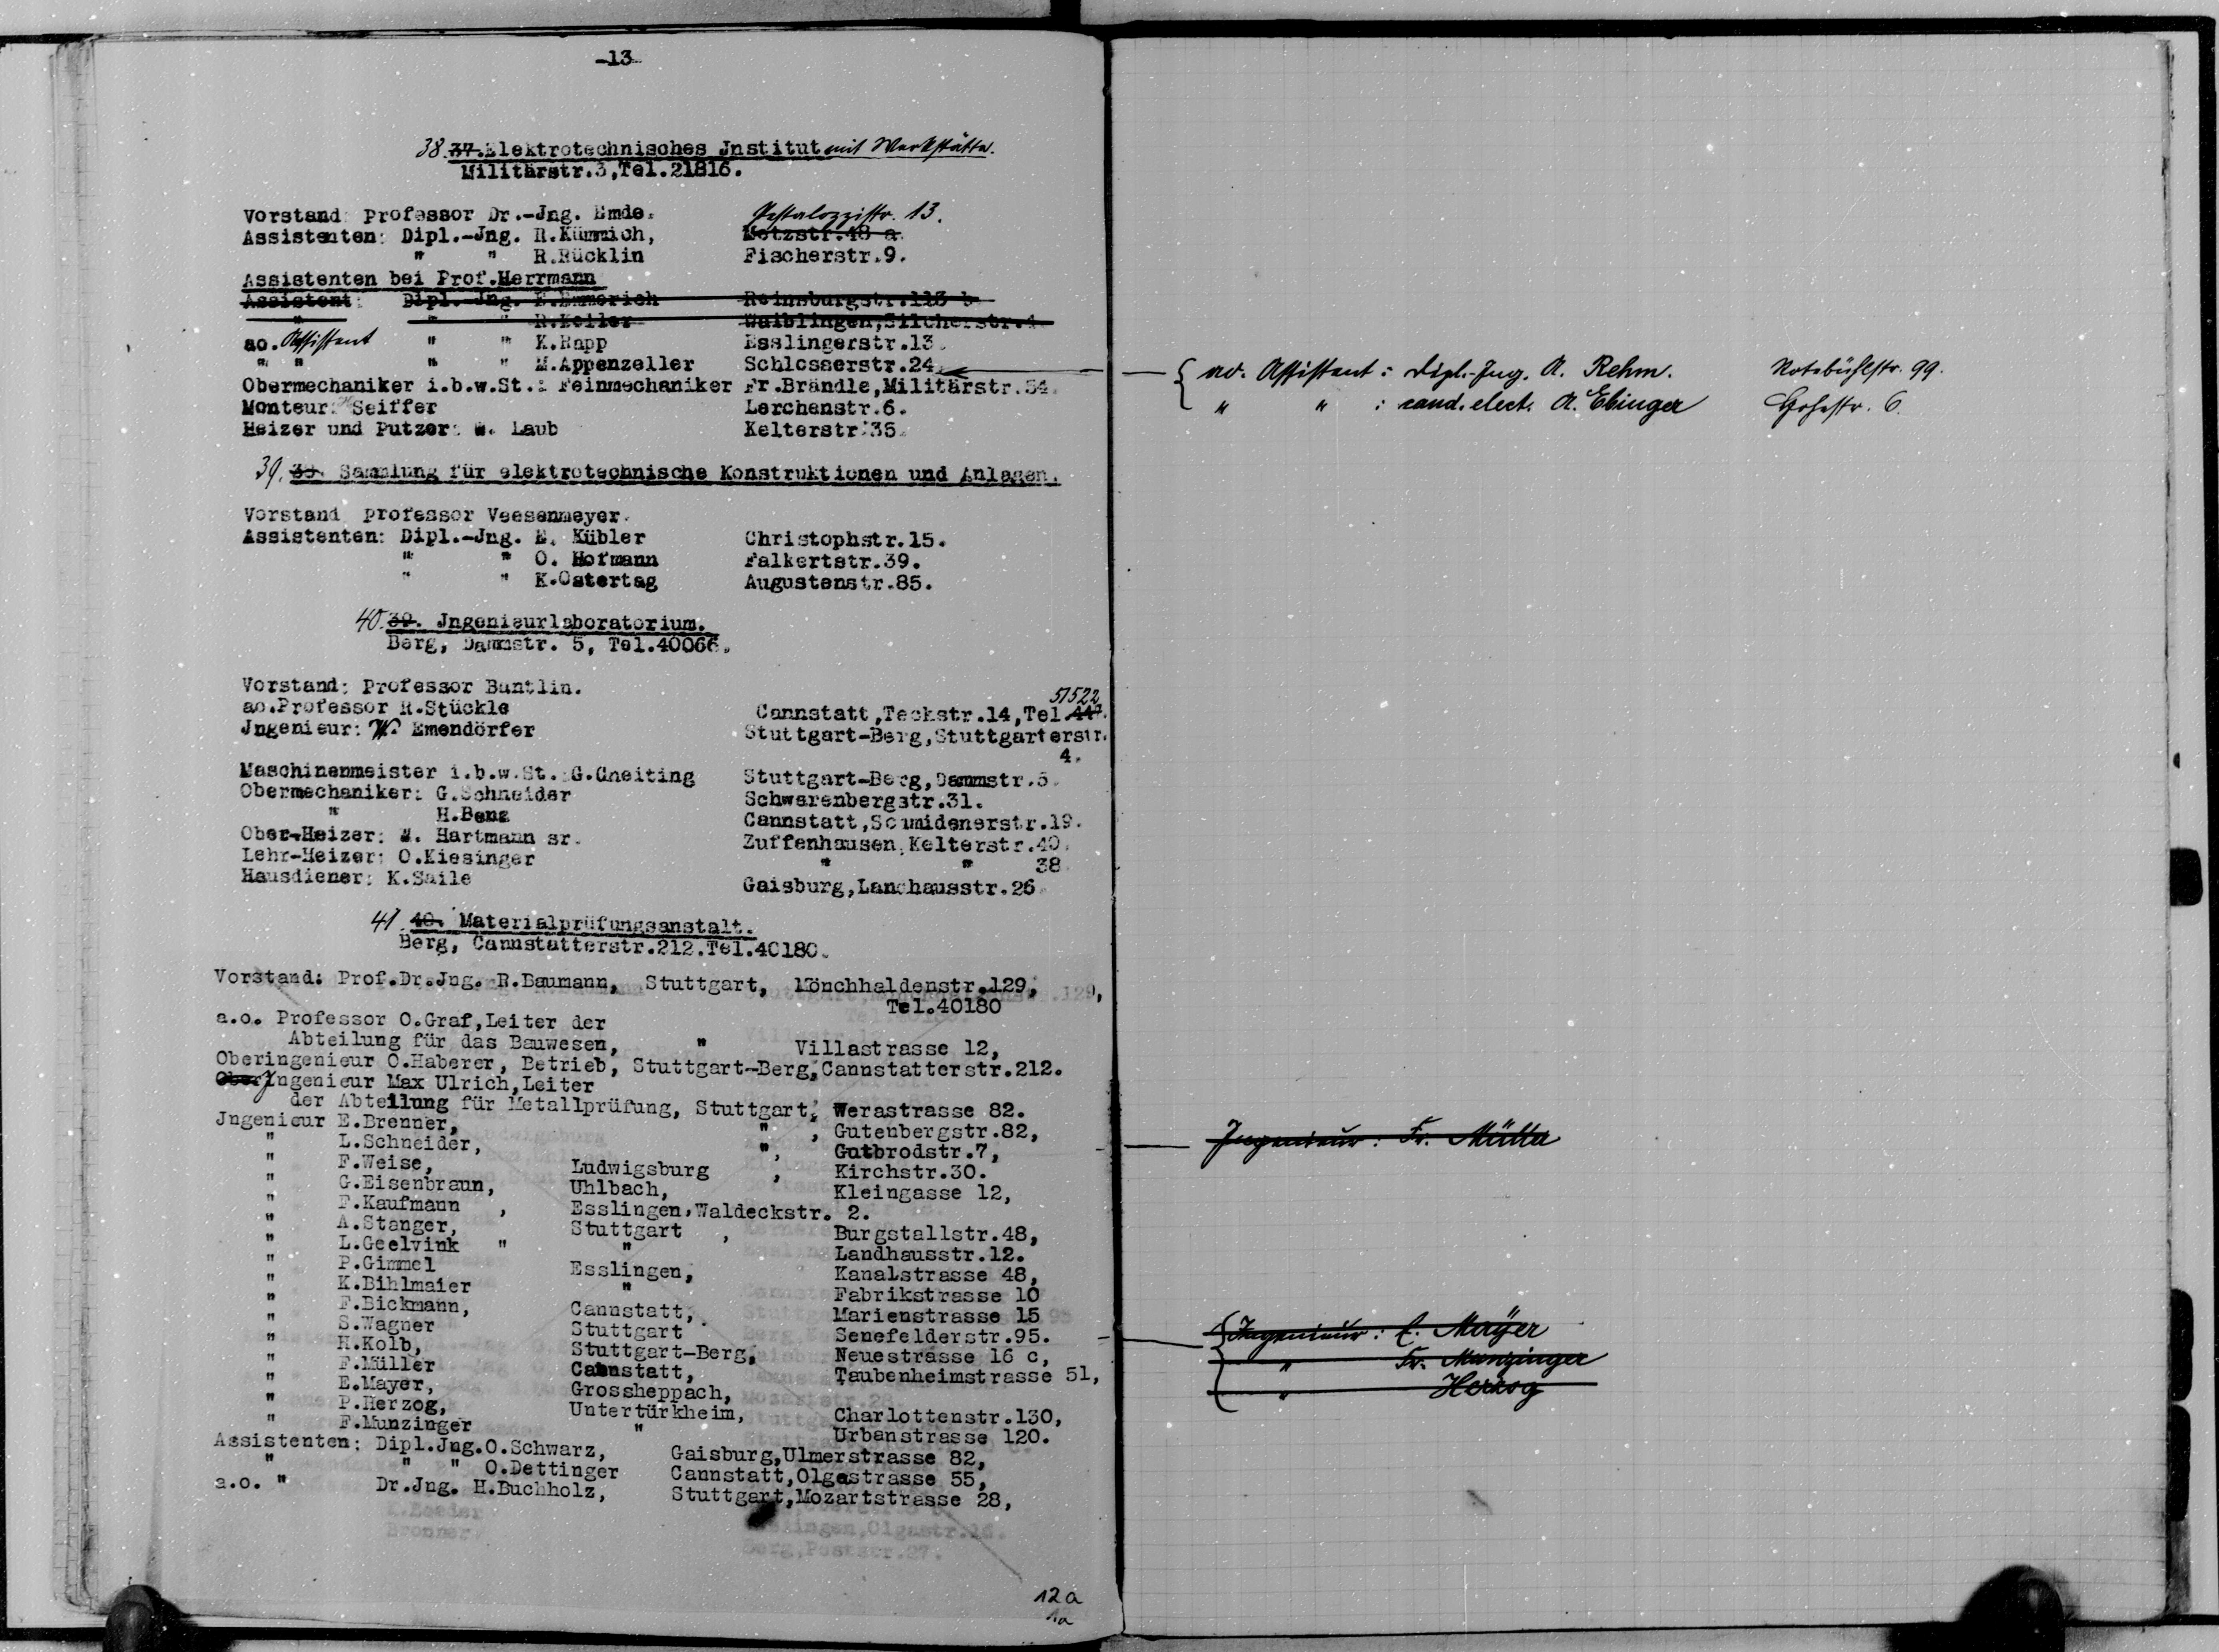 -13-
38. 37. Elektrotechnisches Jnstitut mit Werkstätte.
Militärstr.3,Tel.21816.
Vorstand: Professor Dr.-Jng. Emde. Pestalozzistr. 13.
Assistenten: Dipl.-Jng. R.Kümmich, Metzstr.48 a.
" " R.Rücklin Fischerstr.9.
Assistenten bei Prof.Herrmann
Assistent: Dipl.-Jng. E.Emmerich Reinsburgstr.113 b
" " " R.Keller Waiblingen,Silcherstr.4
ao. Assistent " " K.Rapp Esslingerstr.13.
" " " " M.Appenzeller Schlosserstr.24.
Obermechaniker i.b.w.St.: Feinmechaniker Fr.Brändle,Militärstr.54.
Monteur: Seiffer Lerchenstr.6.
Heizer und Putzer: W. Laub Kelterstr.35.
39. Sammlung für elektrotechnische Konstruktionen und Anlagen.
Vorstand Professor Veesenmeyer.
Assistenten: Dipl.-Jng. E. Kübler Christophstr.15.
" " O. Hofmann Falkertstr.39.
" " K.Ostertag Augustenstr.85.
40. 39. Jngenieurlaboratorium.
Berg, Dammstr. 5, Tel.40066.
Vorstand: Professor Bantlin.
51522
ao.Professor R.Stückle Cannstatt,Teckstr.14,Tel.
Jngenieur: W. Emendörfer Stuttgart-Berg,Stuttgarterstr.
4.
Maschinenmeister i.b.w.St.:G.Gneiting Stuttgart-Berg,Dammstr.5.
Obermechaniker: G.Schneider Schwarenbergstr.31.
" H.Benz Cannstatt,Schmidenerstr.19.
Ober-Heizer: W. Hartmann sr. Zuffenhausen,Kelterstr.40.
Lehr-Heizer: O.Kiesinger " " 38.
Hausdiener: K.Saile Gaisburg,Landhausstr.26.
41. 40. Materialprüfungsanstalt.
Berg, Cannstatterstr.212.Tel.40180.
Vorstand: Prof.Dr.Jng. R.Baumann, Stuttgart, Mönchhaldenstr.129,
Tel.40180
a.o. Professor O.Graf,Leiter der
Abteilung für das Bauwesen, " Villastrasse 12,
Oberingenieur O.Haberer, Betrieb, Stuttgart-Berg,Cannstatterstr.212.
Ober Jngenieur Max Ulrich,Leiter
der Abteilung für Metallprüfung, Stuttgart, Werastrasse 82.
Jngenieur E.Brenner, " , Gutenbergstr.82,
" L.Schneider, ", Gutbrodstr.7,
" F.Weise, Ludwigsburg , Kirchstr.30.
" G.Eisenbraun, Uhlbach, Kleingasse 12,
" F.Kaufmann , Esslingen,Waldeckstr. 2.
" A.Stanger, Stuttgart , Burgstallstr.48,
" L.Geelvink " " Landhausstr.12.
" P.Gimmel Esslingen, Kanalstrasse 48,
" K.Bihlmaier " Fabrikstrasse 10
" F.Bickmann, Cannstatt, Marienstrasse 15
" S.Wagner Stuttgart Senefelderstr.95.
" H.Kolb, Stuttgart-Berg, Neuestrasse 16 c,
" F.Müller Cannstatt, Taubenheimstrasse 51,
" E.Mayer, Grossheppach,
" P.Herzog, Untertürkheim, Charlottenstr.130,
" F.Munzinger " Urbanstrasse 120.
Assistenten: Dipl.Jng.O.Schwarz, Gaisburg,Ulmerstrasse 82,
" " " O.Dettinger Cannstatt,Olgastrasse 55,
a.o. " Dr.Jng. H.Buchholz, Stuttgart,Mozartstrasse 28,
12a
1a
ao. Assistent : Dipl.-Jng. A. Rehm. Rotebühlstr. 99.
" " : cand. elect. A. Ebinger Hohestr. 6.
Jngenieur : Fr. Müller
Jngenieur : E. Mayer
" Fr. Munzinger
" Herzog